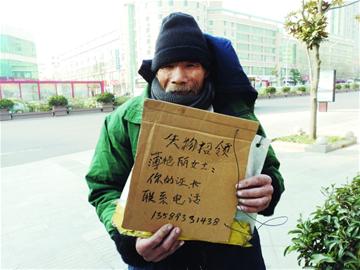 失物招领
薄艳丽女士:
你的证书
联系电话
13589331438